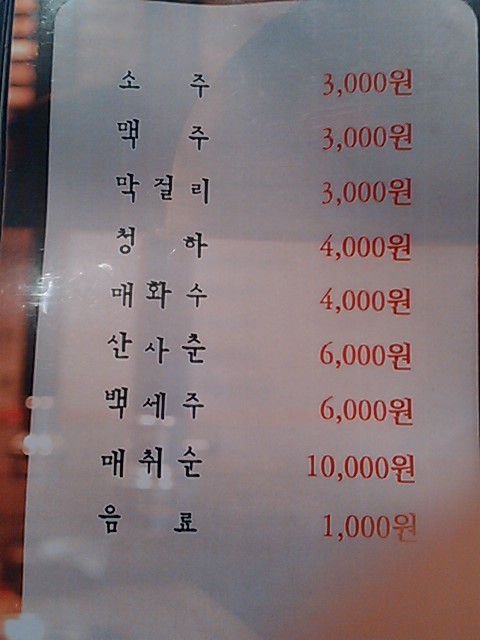 소 주 3,000원
맥 주 3,000원
막 걸 리 3,000원
청 하 4,000원
매 화 수 4,000원
산 사 춘 6,000원
백 세 주 6,000원
매 취 순 10,000원
음 료 1,000원